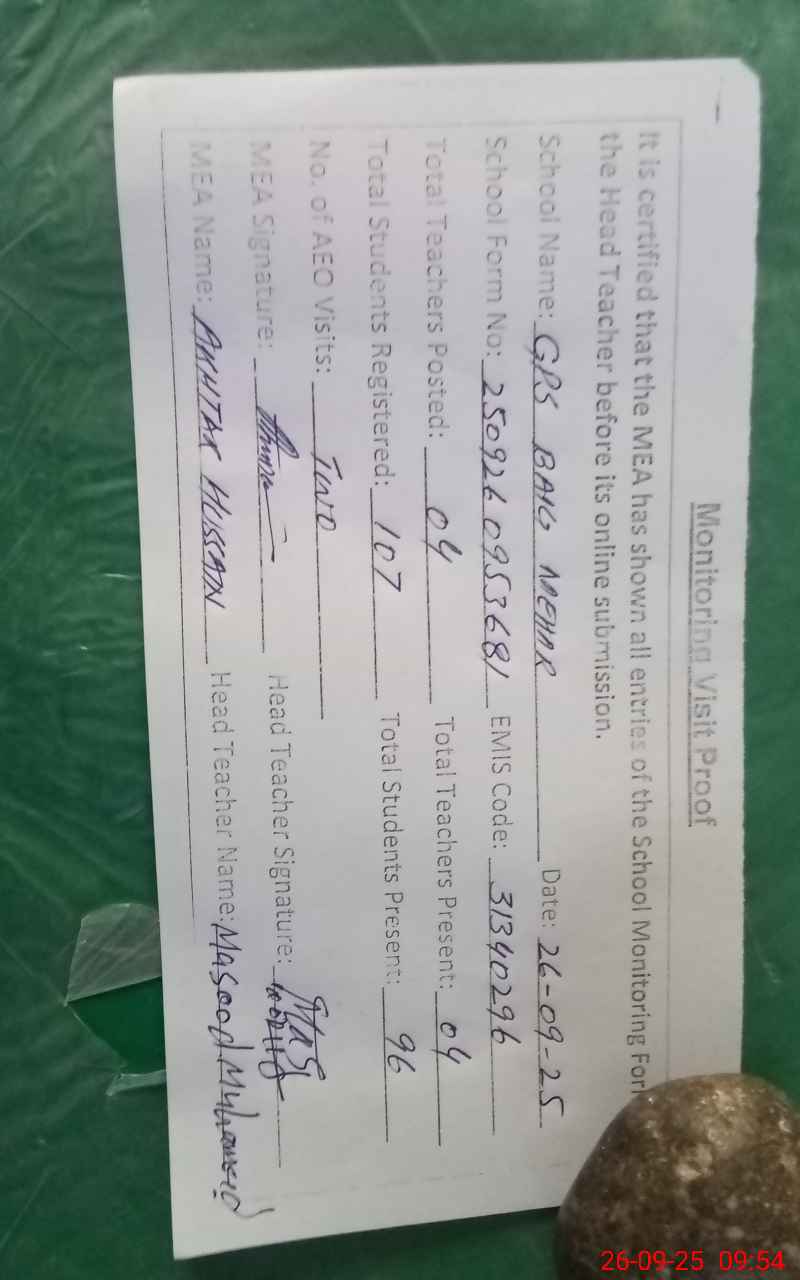 Monitoring Visit Proof
It is certified that the MEA has shown all entries of the School Monitoring For
the Head Teacher before its online submission.
School Name: GPS BAIG MEHAR Date: 26-09-25
School Form No: 2509260953681 EMIS Code: 31340296
Total Teachers Posted: 04 Total Teachers Present: 04
Total Students Registered: 107 Total Students Present: 96
No. of AEO Visits: Two
MEA Signature: Head Teacher Signature:
MEA Name: AKHTAR HUSSAIN Head Teacher Name: Masood Muhammad
26-09-25 09:54